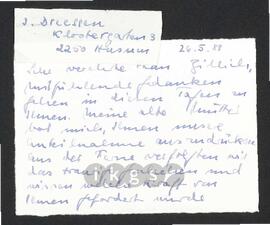 J. Driessen
Klostergarten 3
2250 Husum
26.5.88
Sehr verehrte Frau Zillich,
mitfühlende Gedanken
gehen in diesen Tagen zu
Ihnen. Meine alte Mutter
bat mich, Ihnen unsere
Anteilnahme auszudrücken
aus der Ferne verfolgten wir
das
und
wissen wieviel Kraft von
Ihnen gefordert wurde
ikgs